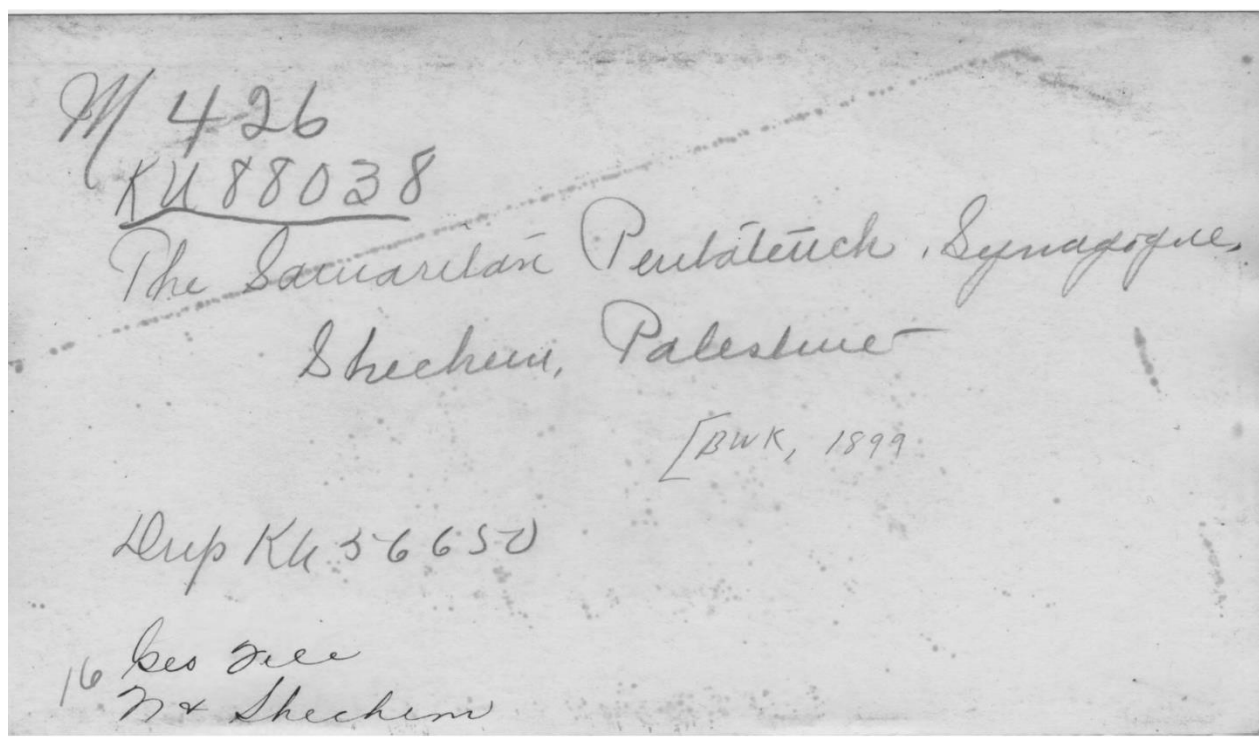 M 426
KU88038
The Samaritan Pentateuch, Synagogue,
Shechem, Palestine
[BWK, 1899
Dup Ku 56650
16 Geo File
Nr Shechem